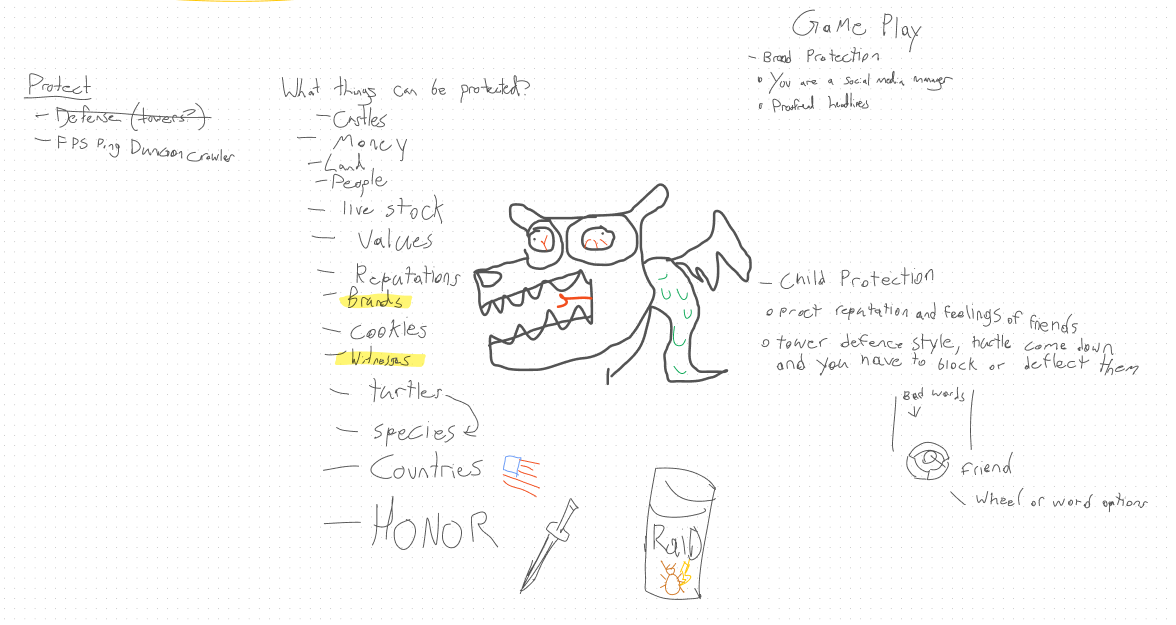 Protect
- Defense (towers?)
- FPS Ping Dungeon Crawler
What things can be protected?
- Castles
- Money
- Land
- People
- live stock
- Values
- Reputations
- Brands
- Cookies
- Witnesses
- turtles
- species
- Countries
- HONOR
RAID
Game Play
- Brand Protection
• You are a social media manager
• Proofread headlines
- Child Protection
o proct reputation and feelings of friends
o tower defence style, turtle come down
and you have to block or deflect them
Bad words
friend
wheel or word options